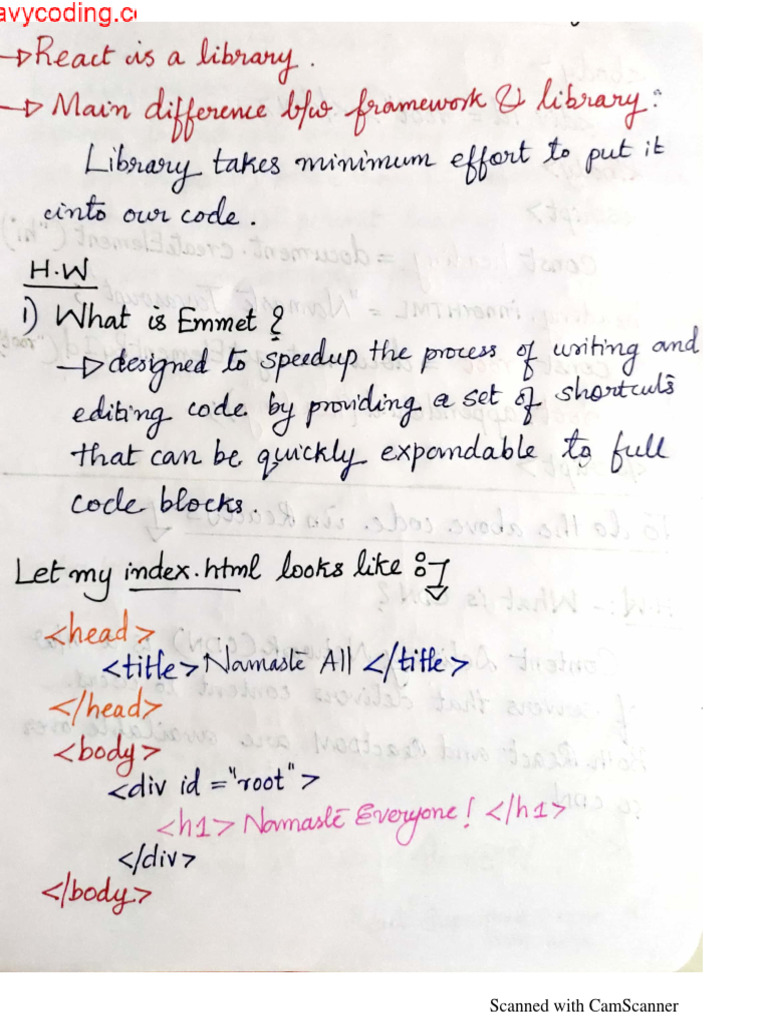 avycoding.c
→ React is a library.
→ Main difference b/w framework & library:
Library takes minimum effort to put it
into our code.
H.W
i) What is Emmet ?
→ designed to speedup the process of writing and
editing code by providing a set of shortcuts
that can be quickly expandable to full
code blocks.
Let my index.html looks like :
<head>
<title> Namastē All </title>
</head>
<body>
<div id = "root">
<h1> Namastē Everyone! </h1>
</div>
</body>
Scanned with CamScanner